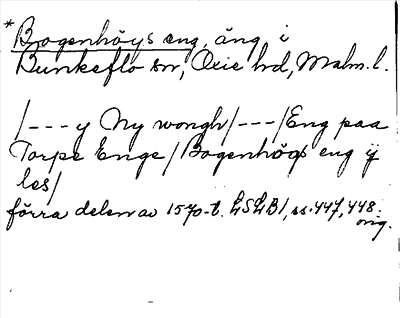 *Bogenhöys eng, äng i
Bunkeflo sn, Oxie hd, Malm. l.
/---y Ny wongh/---/Eng paa
Torpe Enge/Bogenhögs eng ÿ
les/
förra delen av 1570-t. LSLB1, ss. 447, 448.
orig.